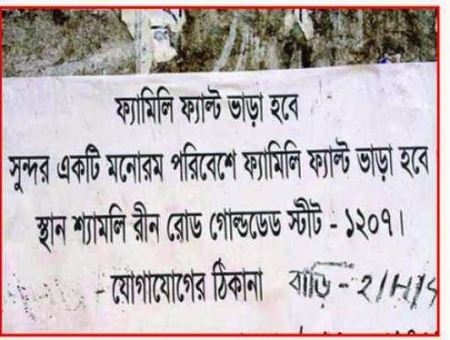 ফ্যামিলি ফ্যাল্ট ভাড়া হবে
সুন্দর একটি মনোরম পরিবেশে ফ্যামিলি ফ্যাল্ট ভাড়া হবে
স্থান শ্যামলি রীন রোড গোল্ডডেড স্টীট - ১২০৭।
- যোগাযোগের ঠিকানা বাড়ি - ২/H/